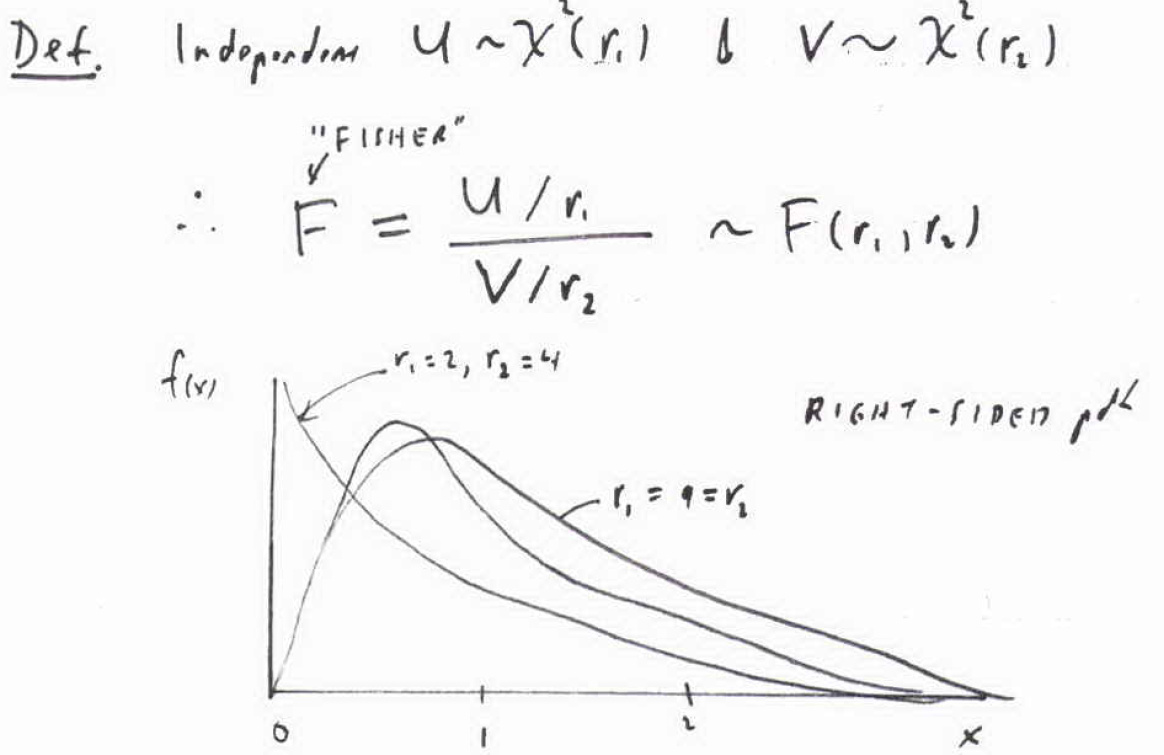 Def. Independent U ~ χ²(r₁) & V ~ χ²(r₂)
"FISHER"
∴ F = U/r₁ / V/r₂ ~ F(r₁, r₂)
f(x)
r₁ = 2, r₂ = 4
RIGHT-SIDED pdf
r₁ = 9 = r₂
0 1 2 x